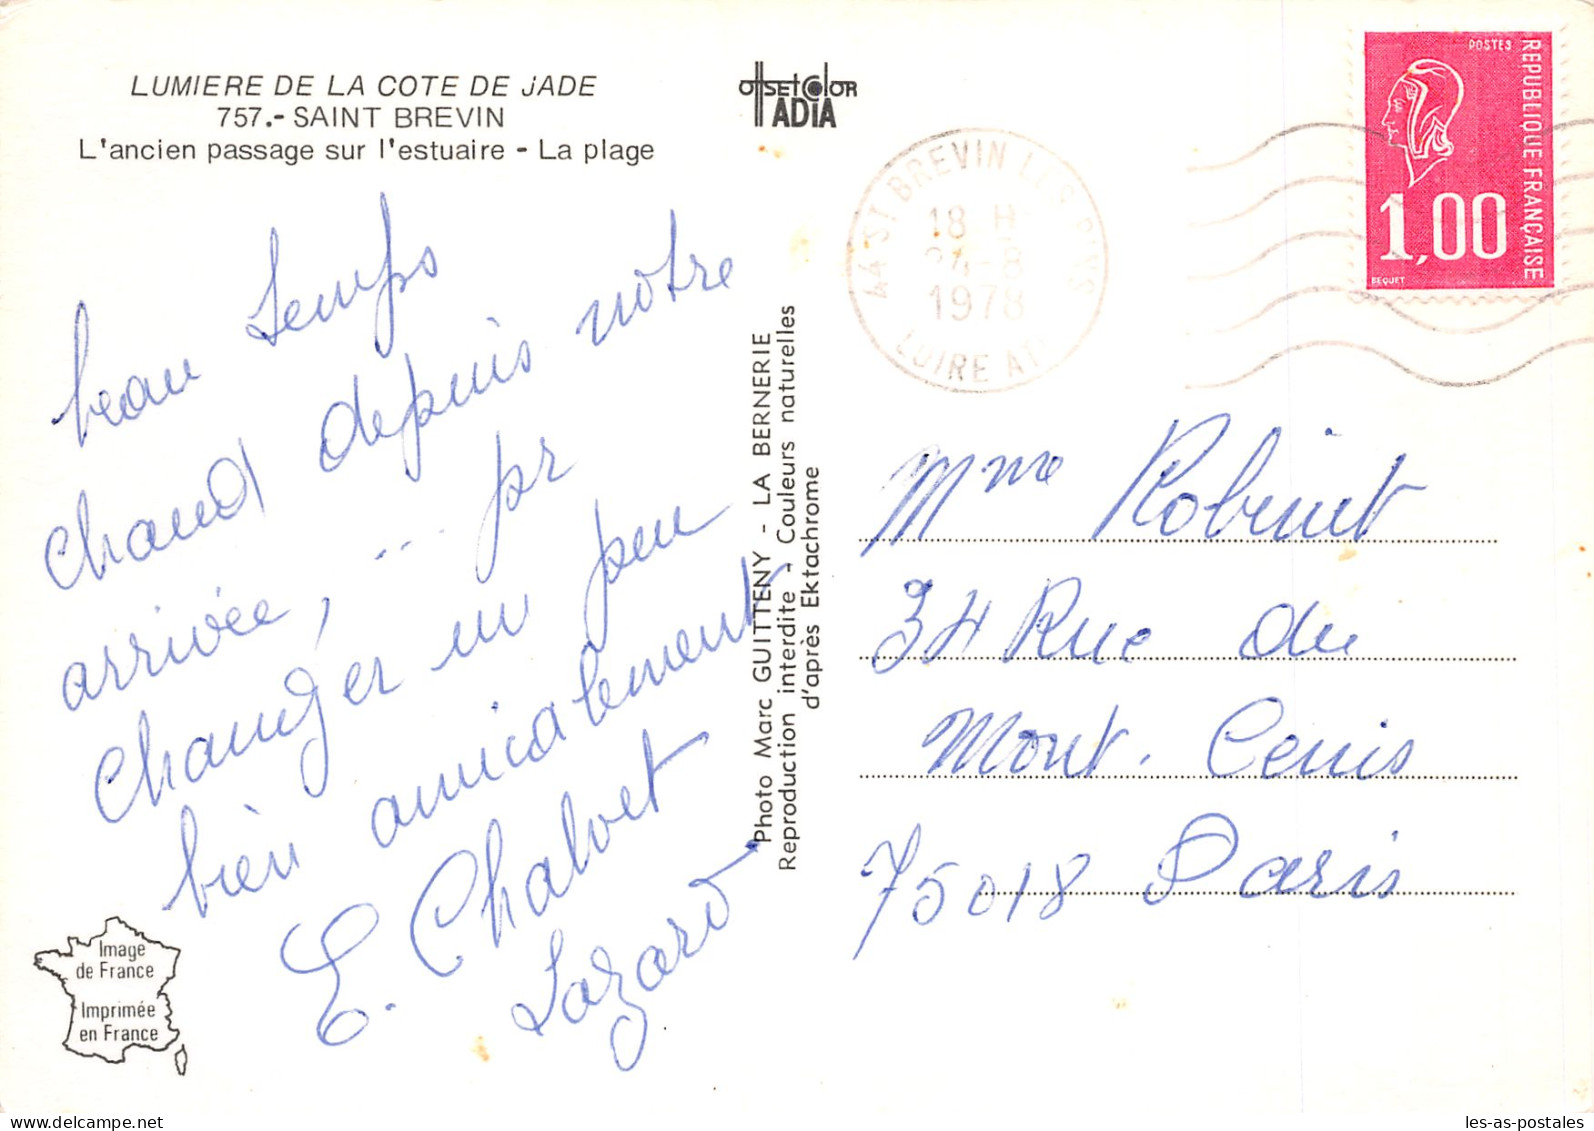 LUMIERE DE LA COTE DE JADE
757.- SAINT BREVIN
L'ancien passage sur l'estuaire - La plage
beau temps
chaud depuis notre
arrivée, ... pr
changer un peu
bien amicalement
E. Chalvet
Lazard
Image
de France
Imprimée
en France
offset color
ADIA
Photo Marc GUITTENY - LA BERNERIE
Reproduction interdite - Couleurs naturelles
d'après Ektachrome
44 ST BREVIN LES PINS
18 H
1978
LOIRE
POSTES
REPUBLIQUE FRANÇAISE
1,00
BEQUET
Mme Robinet
34 Rue du
Mont. Cenis
75018 Paris
delcampe.net
les-as-postales